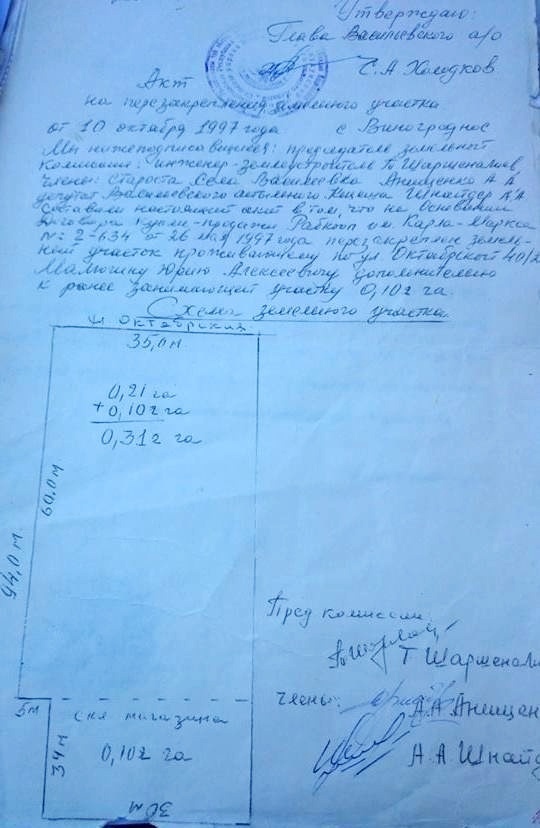 Утверждаю:
Глава Васильевского а/о
С.А Холодков
Акт
на перезакрепления земельного участка
от 10 октября 1997 года с Виноградное
Мы нижеподписавшиеся: председателя земельной
комиссии: инженер-землеустроитель Т Шаршеналиев,
члены: Староста села Васильевка Анищенко А А
депутат Васильевского айылного Кенеша Шнайдер А А
составили настоящий акт в том, что на основании
договора купли-продажи Райпо им. Карла-Маркса
№ 2-634 от 26 мая 1997 года перезакреплен земель-
ной участок проживающему по ул Октябрской 40/2
Малюгину Юрию Алексеевичу дополнительно
к ранее занимающей участку 0,102 га.
Схема земельного участка
ул Октябрская
35,0 м
0,21 га
+0,102 га
0,312 га
60,0 м
94,0 м
Пред комиссии
Т Шаршенали
члены:
А.А.Анищен
А А Шнайд
5 м
магазина
0,102 га
34 м
30 м